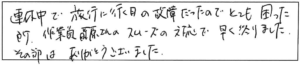 連休中で旅行に行く日の故障だったのでとても困った
が、作業員 さんのスムーズの対応で早く治りました。
その節は ありがとうございました。